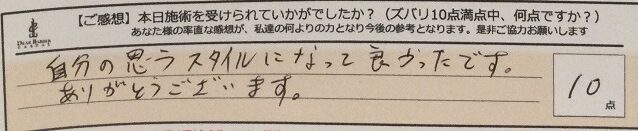 【ご感想】本日施術を受けられていかがでしたか？（ズバリ10点満点中、何点ですか？）
あなた様の率直な感想が、私達の何よりの力となり今後の参考となります。是非ご協力お願いします
自分の思うスタイルになって良かったです。
ありがとうございます。
10
点